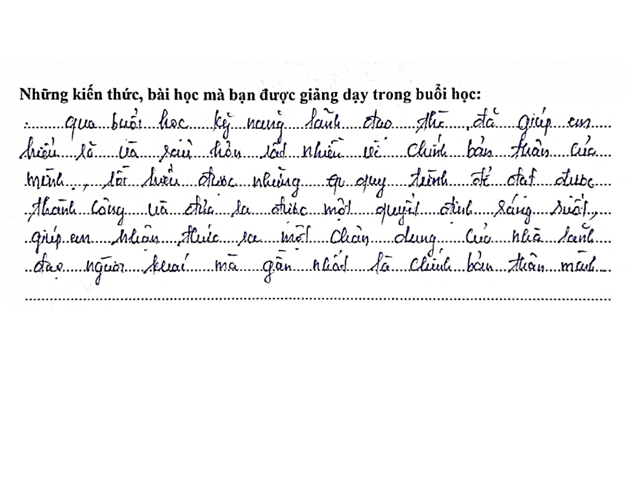 Những kiến thức, bài học mà bạn được giảng dạy trong buổi học:
qua buổi học kỹ năng lãnh đạo thì đã giúp em
hiểu rõ và sâu hơn rất nhiều về chính bản thân của
mình, tôi hiểu được những qu quy trình để đạt được
thành công và đưa ra được một quyết định sáng suốt,
giúp em nhận thức ra một chân dung của nhà lãnh
đạo người khác mà gần nhất là chính bản thân mình